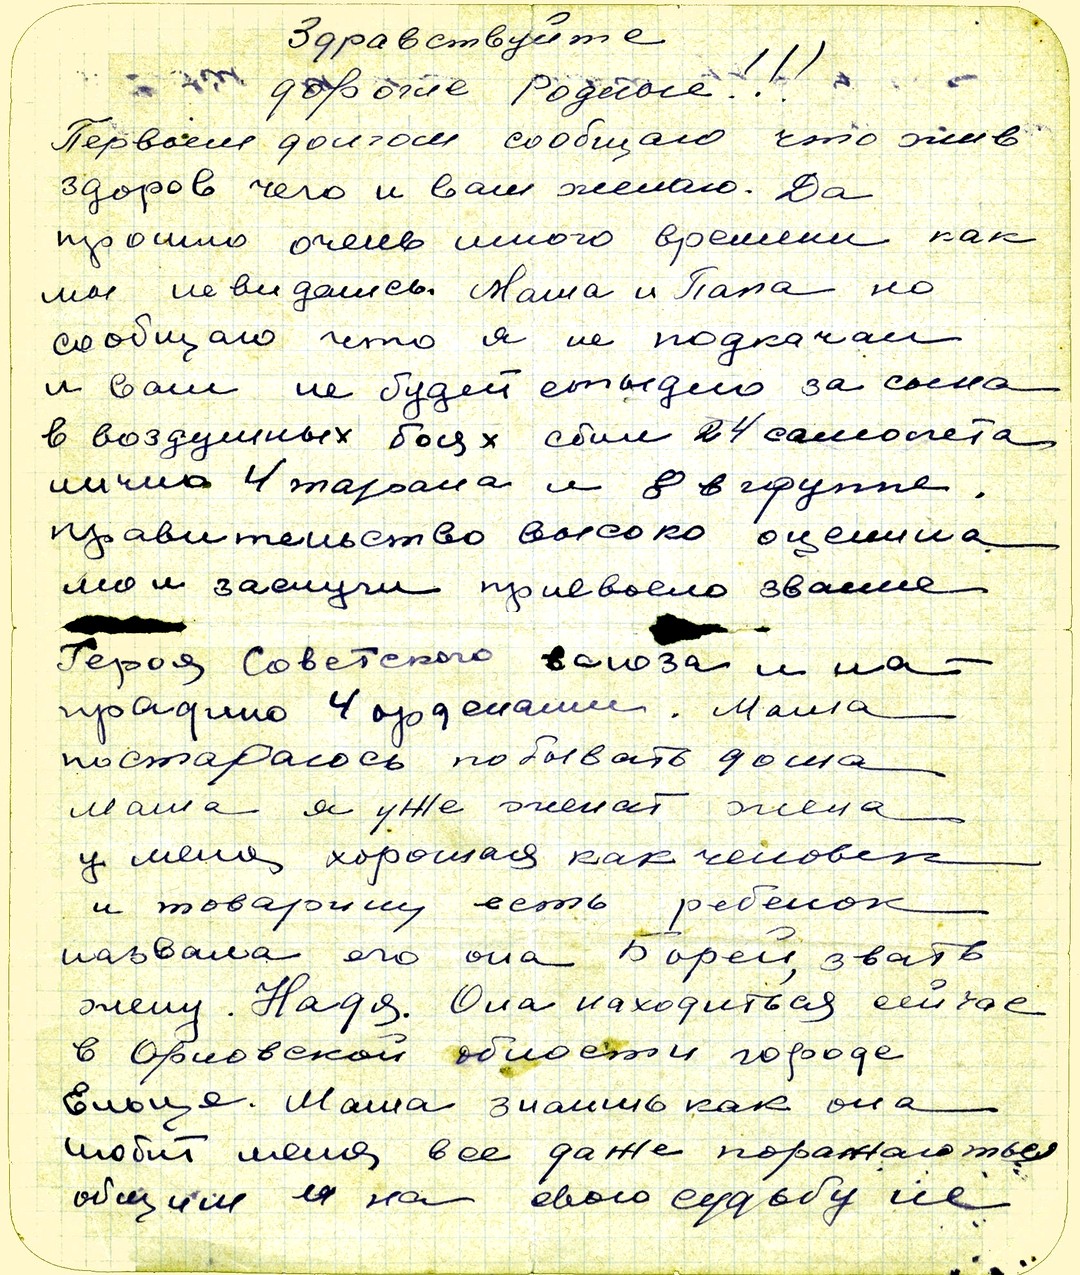 Здравствуйте
дорогие Родные!!!
Первым долгом сообщаю что жив
здоров чего и вам желаю. Да
прошло очень много времени как
мы невидались. Мама и Папа но
сообщаю что я не подкачал
и вам не будет стыдно за сына
в воздушных боях сбил 24 самолета
лично 4 тарана и 8 в группе.
правительство высоко оценила
мои заслуги присвоело звание
Героя Советского союза и на-
градило 4 орденами. Мама
постараюсь побывать дома
мама я уже женат жена
у меня хорошая как человек
и товарищ есть ребенок
назвала его она Борей, звать
жену. Надя. Она находиться сейчас
в Орловской области городе
Ельце. Мама знаишь как она
любит меня все даже поражаються
общим я на свою судьбу не